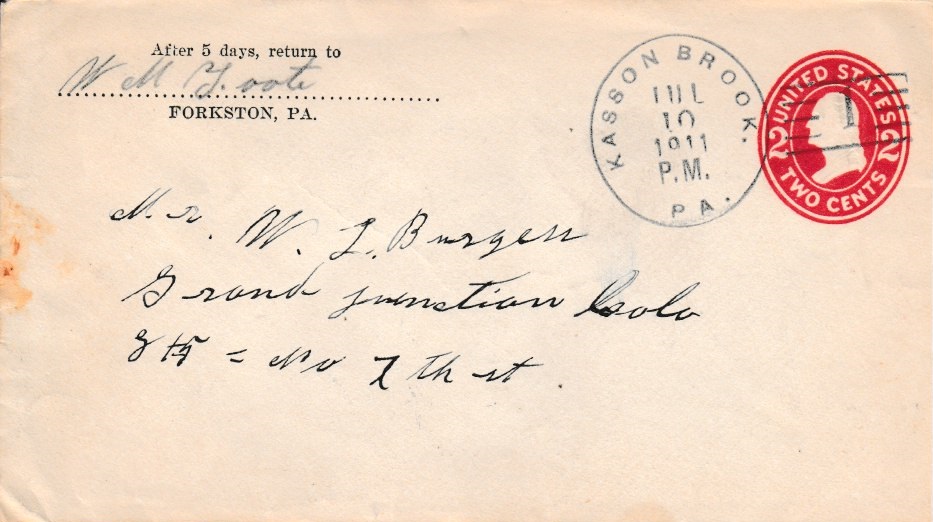 After 5 days, return to
W M Foote
FORKSTON, PA.
KASSON BROOK.
JUL
10
1911
P.M.
PA.
1
UNITED STATES
2 2
TWO CENTS
Mr. W. L. Burgess
Grand Junction Colo
= No 7 th st.